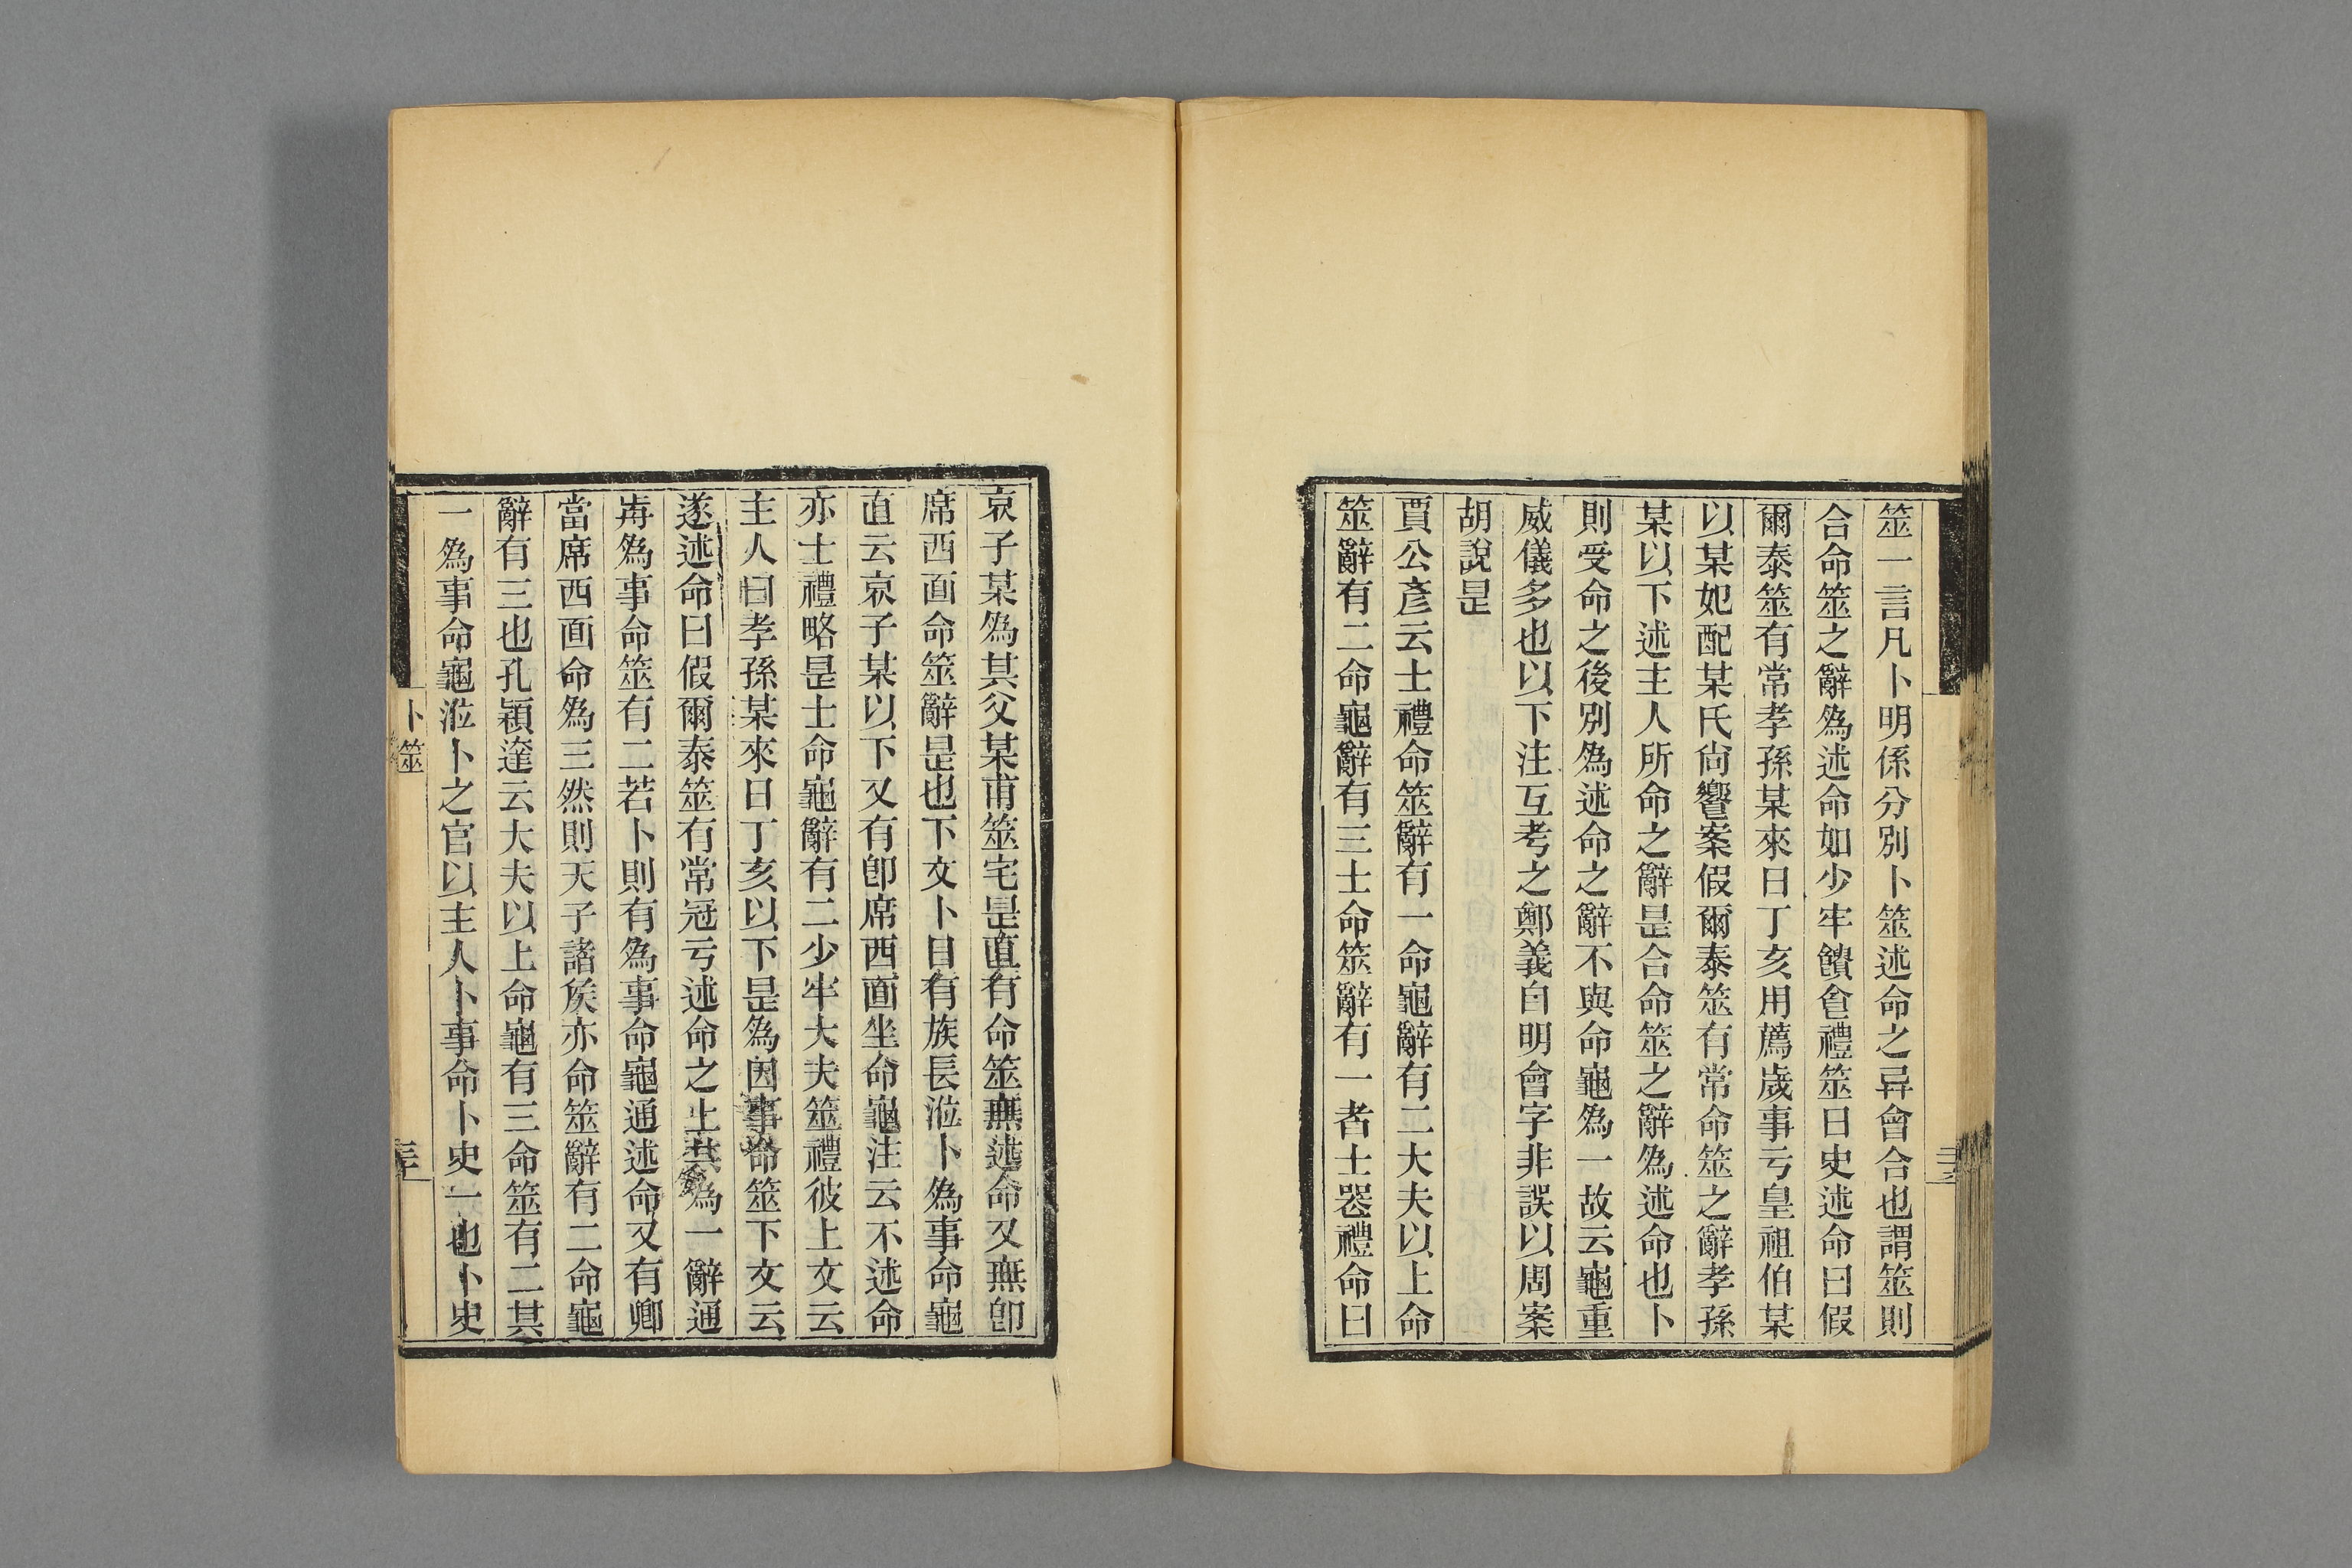 筮一言凡卜明係分別卜筮述命之异會合也謂筮則
合命筮之辭為述命如少牢饋食禮筮日史述命曰假
爾泰筮有常孝孫某來日丁亥用薦歲事亏皇祖伯某
以某妃配某氏尙饗案假爾泰筮有常命筮之辭孝孫
某以下述主人所命之辭是合命筮之辭為述命也卜
則受命之後別為述命之辭不與命龜為一故云龜重
威儀多也以下注互考之鄭義自明會字非誤以周案
胡說是
賈公彥云士禮命筮辭有一命龜辭有二大夫以上命
筮辭有二命龜辭有三士命筮辭有一者士喪禮命曰
哀子某為其父某甫筮宅是直有命筮無述命又無卽
席西面命筮辭是也下文卜日有族長涖卜為事命龜
直云哀子某以下又有卽席西面坐命龜注云不述命
亦士禮略是士命龜辭有二少牢大夫筮禮彼上文云
主人曰孝孫某來日丁亥以下是為因事命筮下文云
遂述命曰假爾泰筮有常冠亏述命之上共為一辭通
歬為事命筮有二若卜則有為事命龜通述命又有卿
當席西面命為三然則天子諸矦亦命筮辭有二命龜
辭有三也孔穎達云大夫以上命龜有三命筮有二其
一為事命龜涖卜之官以主人卜事命卜史一也卜史
卜筮